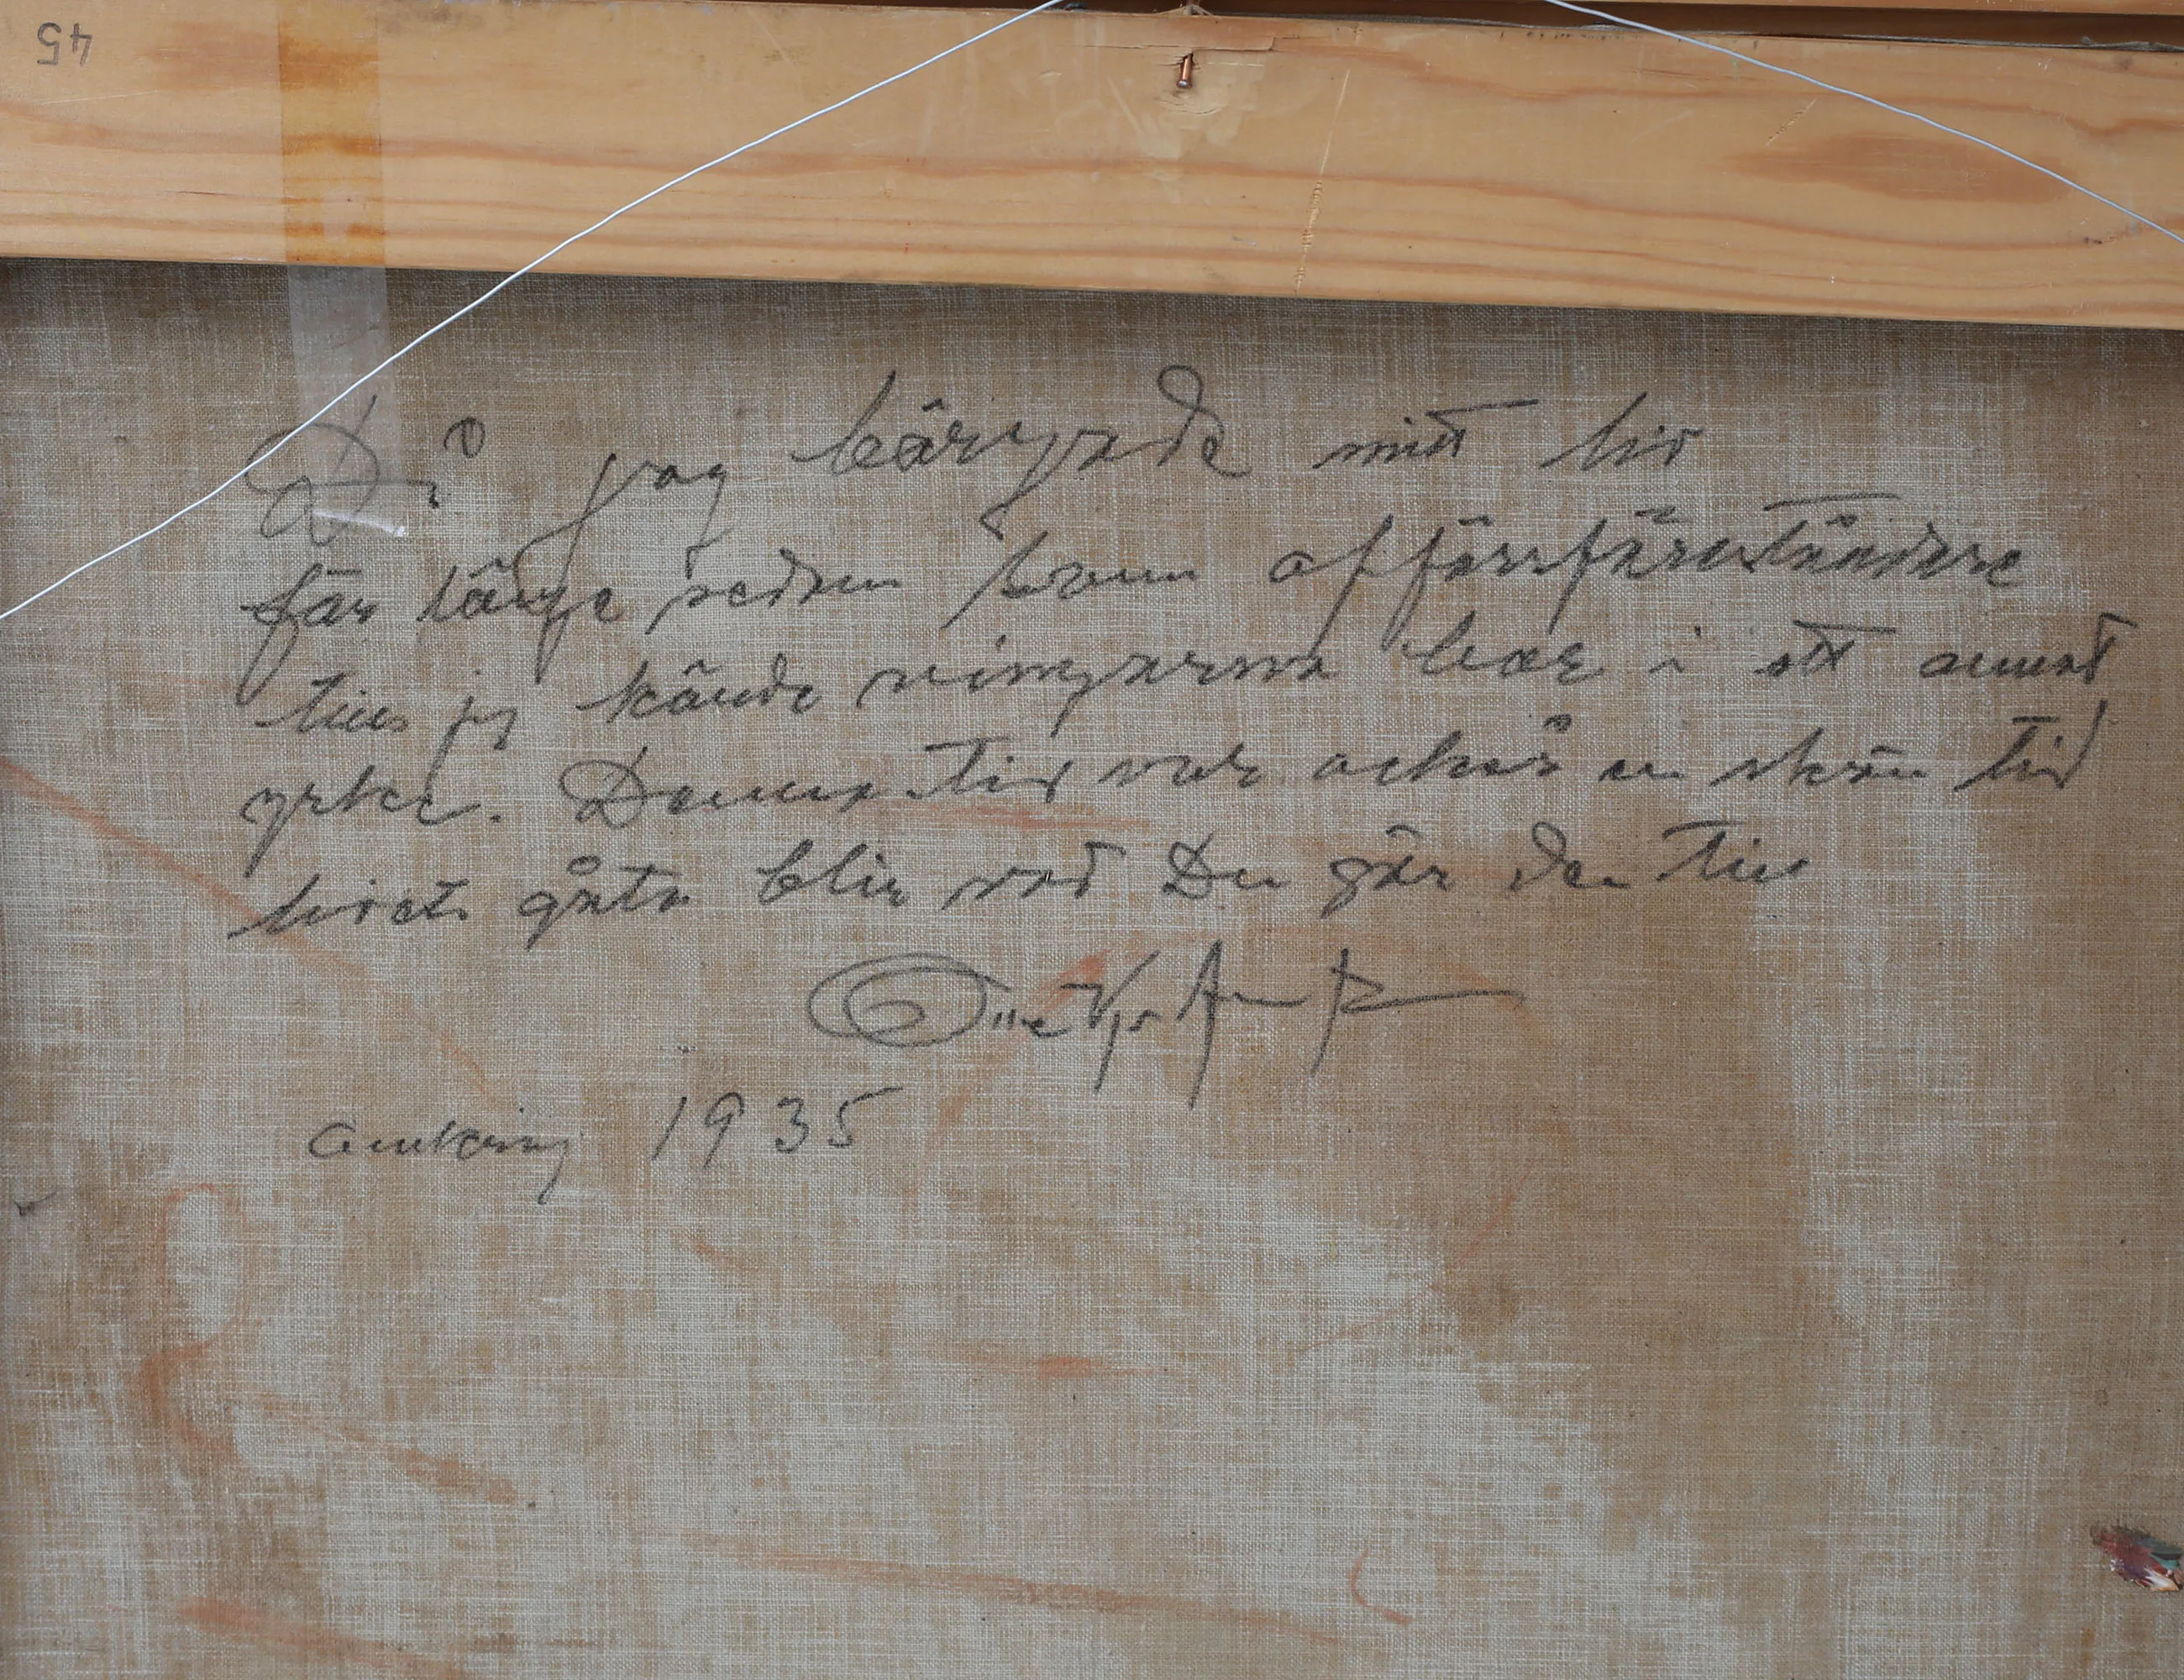 45
Då jag bärgade mitt liv
för länge sedan som affärsföreståndare
tills jag kände vingarna bar i ett annat
yrke. Denna tid var också en skön tid
livets gåta blir vad Du gör den till
1935